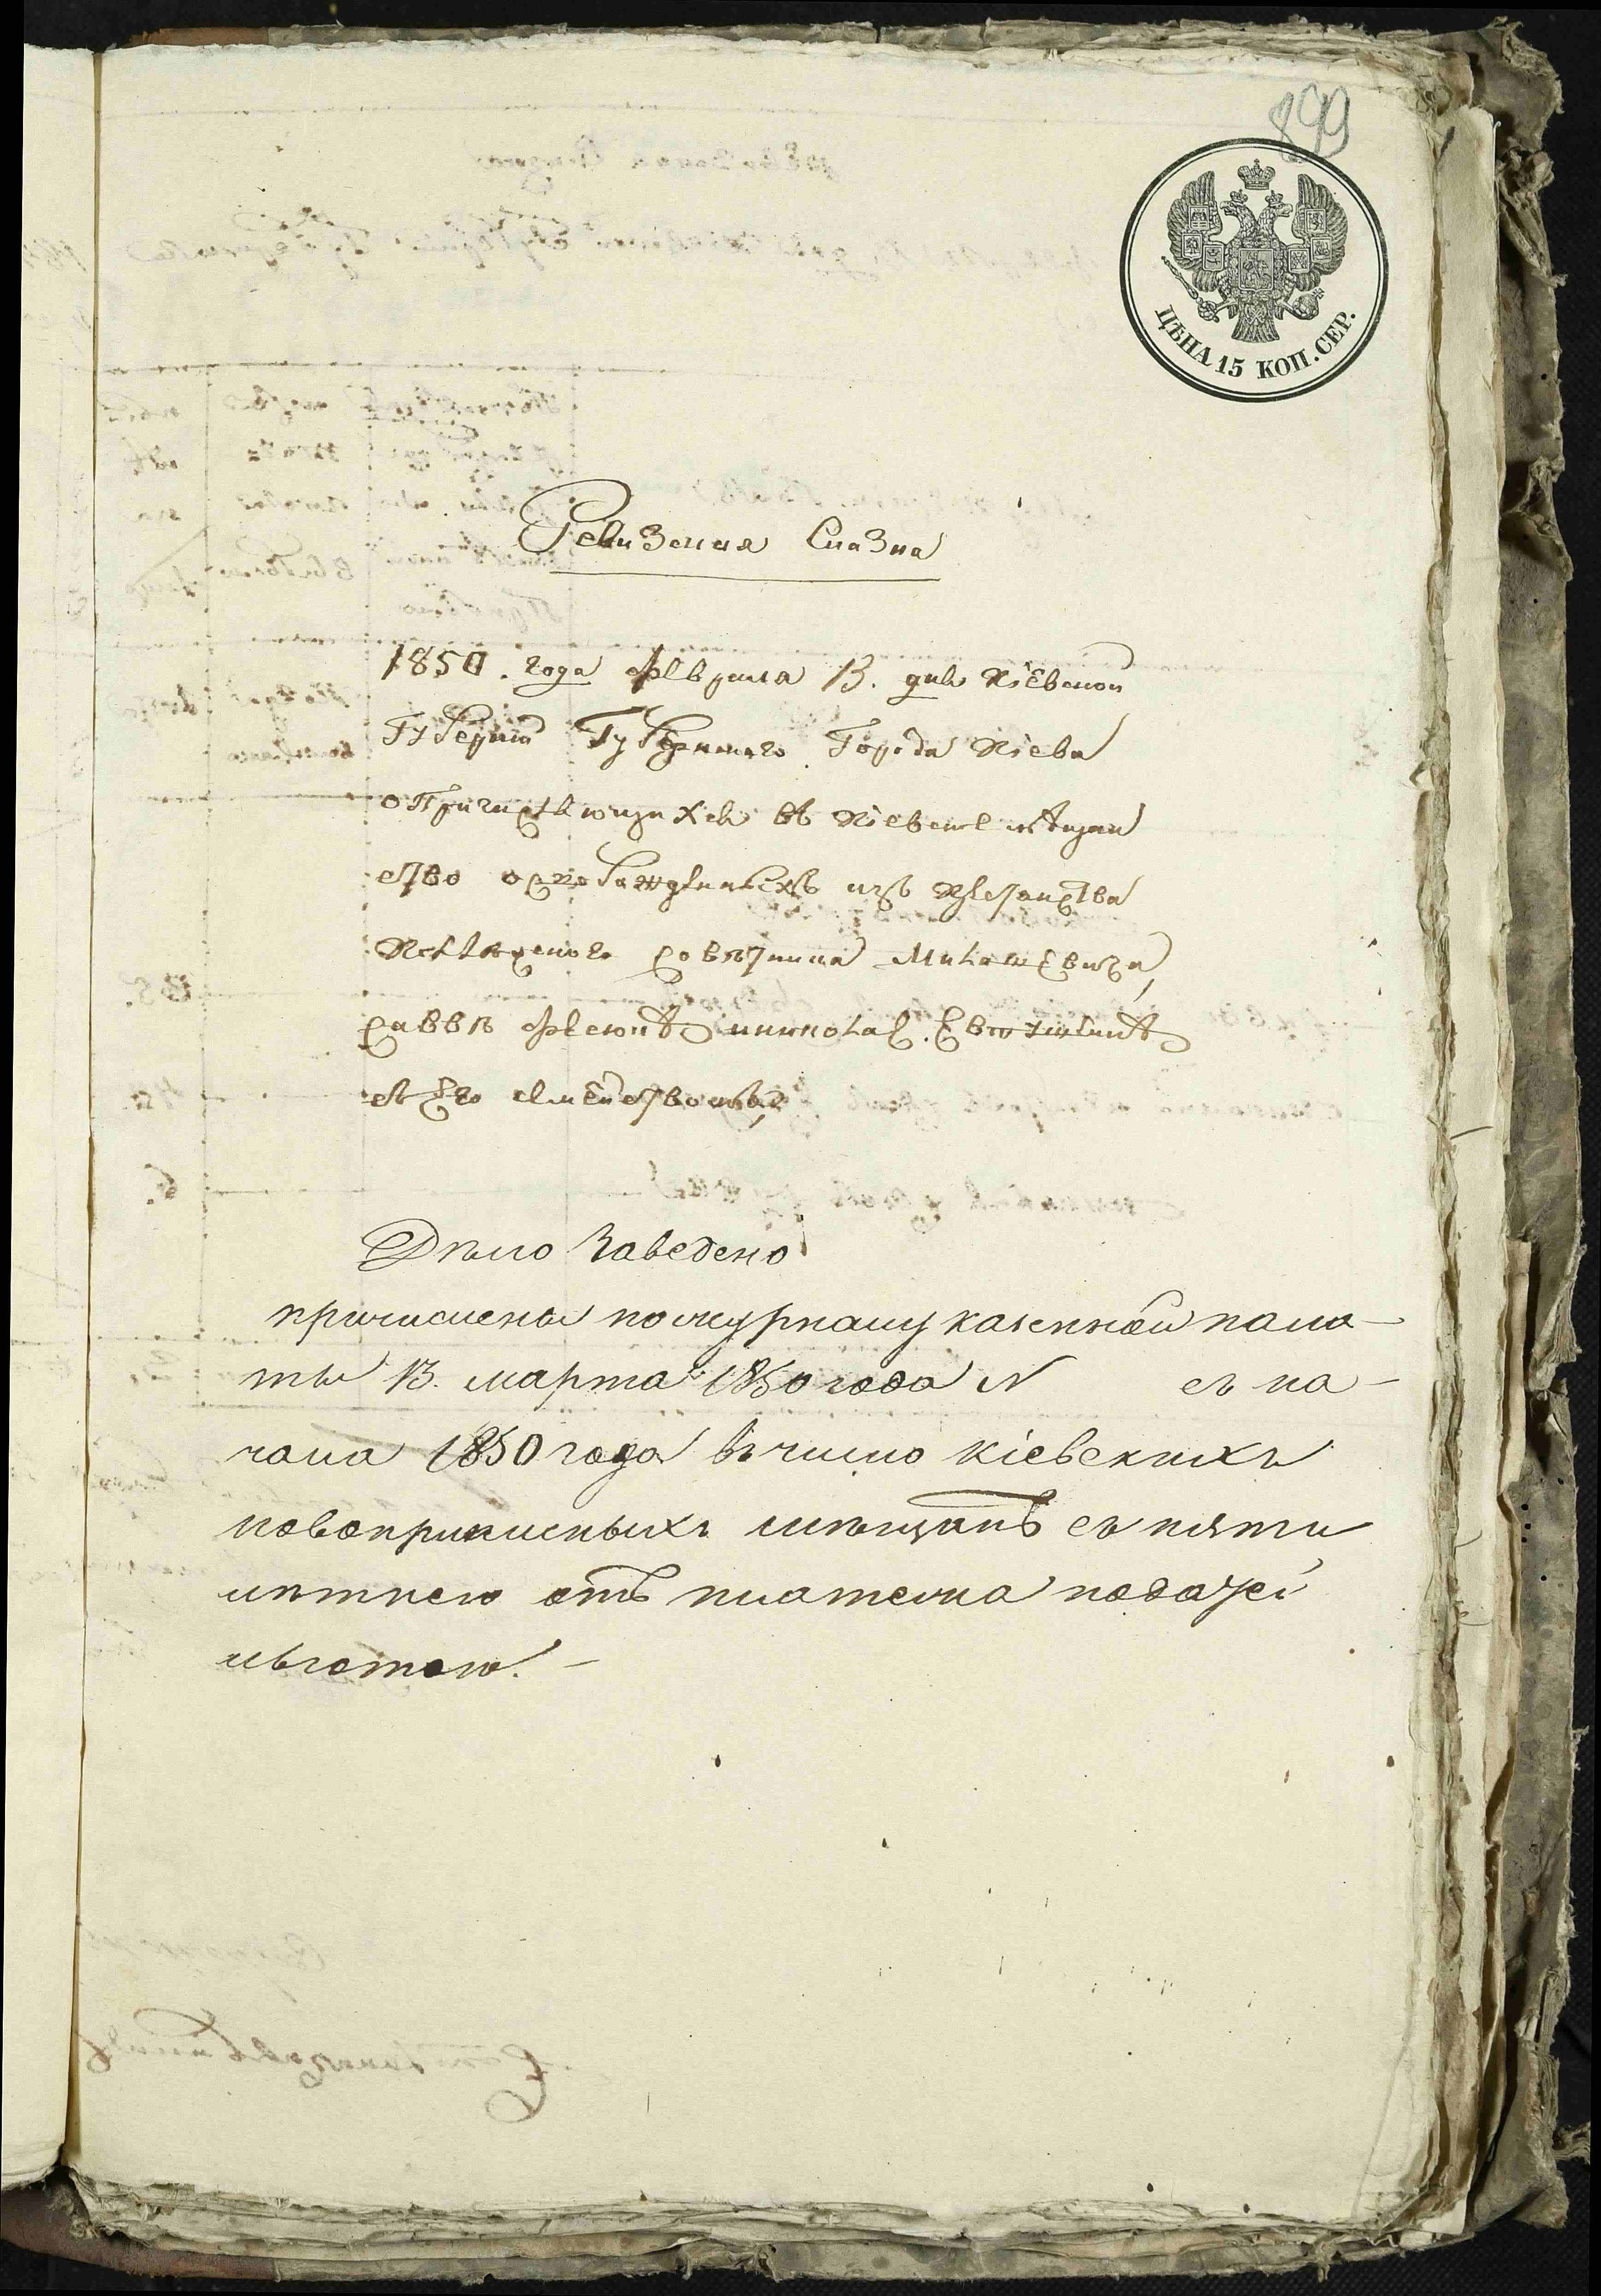 199
ЦѢНА 15 КОП. СЕР.
Ревизская Сказка
1850. года февраля 13. дня Кіевской
Губерніи Губернскаго Города Кіева
о Причисляющихся въ Кіевское мѣщан
ство освобожденныхъ изъ крестьянства
Коллежскаго совѣтника Милашевича,
Саввѣ
съ Его семействомъ,
Дѣло Заведено
причислены по журналу казенной пала-
ты 13. марта 1850 года N съ на-
чала 1850 года въ число кіевскихъ
новоприписныхъ мѣщанъ съ пяти
лѣтнею отъ платежа податей
льготою. –